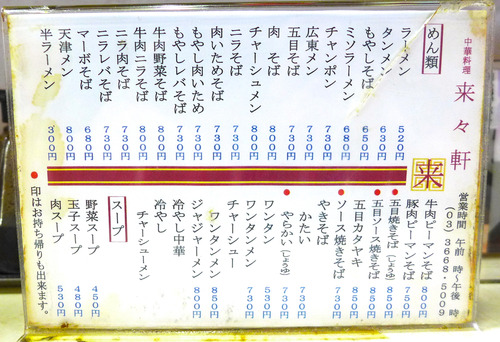 中華料理 来々軒
営業時間 午前 時〜午後 時
(03)3668-5009
来
めん類
ラーメン 520円
タンメン 630円
もやしそば 650円
ミソラーメン 680円
チャンポン 730円
広東メン 730円
五目そば 730円
肉そば 800円
チャーシューメン 800円
ニラそば 730円
肉いためそば 730円
もやし肉いため 730円
もやしレバそば 730円
牛肉野菜そば 800円
牛肉ニラそば 800円
ニラ肉そば 730円
ニラレバそば 730円
マーボそば 680円
天津メン 800円
半ラーメン 300円
牛肉ピーマンそば 800円
豚肉ピーマンそば 750円
●五目焼きそば(しょうゆ) 850円
●五目ソース焼きそば 850円
五目カタヤキ 850円
●ソース焼きそば 730円
やきそば
かたい 730円
●やらかい(しょうゆ) 730円
ワンタン 530円
ワンタンメン 730円
チャーシュー
ワンタンメン 850円
ジャジャーメン 800円
冷やし中華
冷やし
チャーシューメン
スープ
野菜スープ 450円
玉子スープ 480円
肉スープ 530円
●印はお持ち帰りも出来ます。